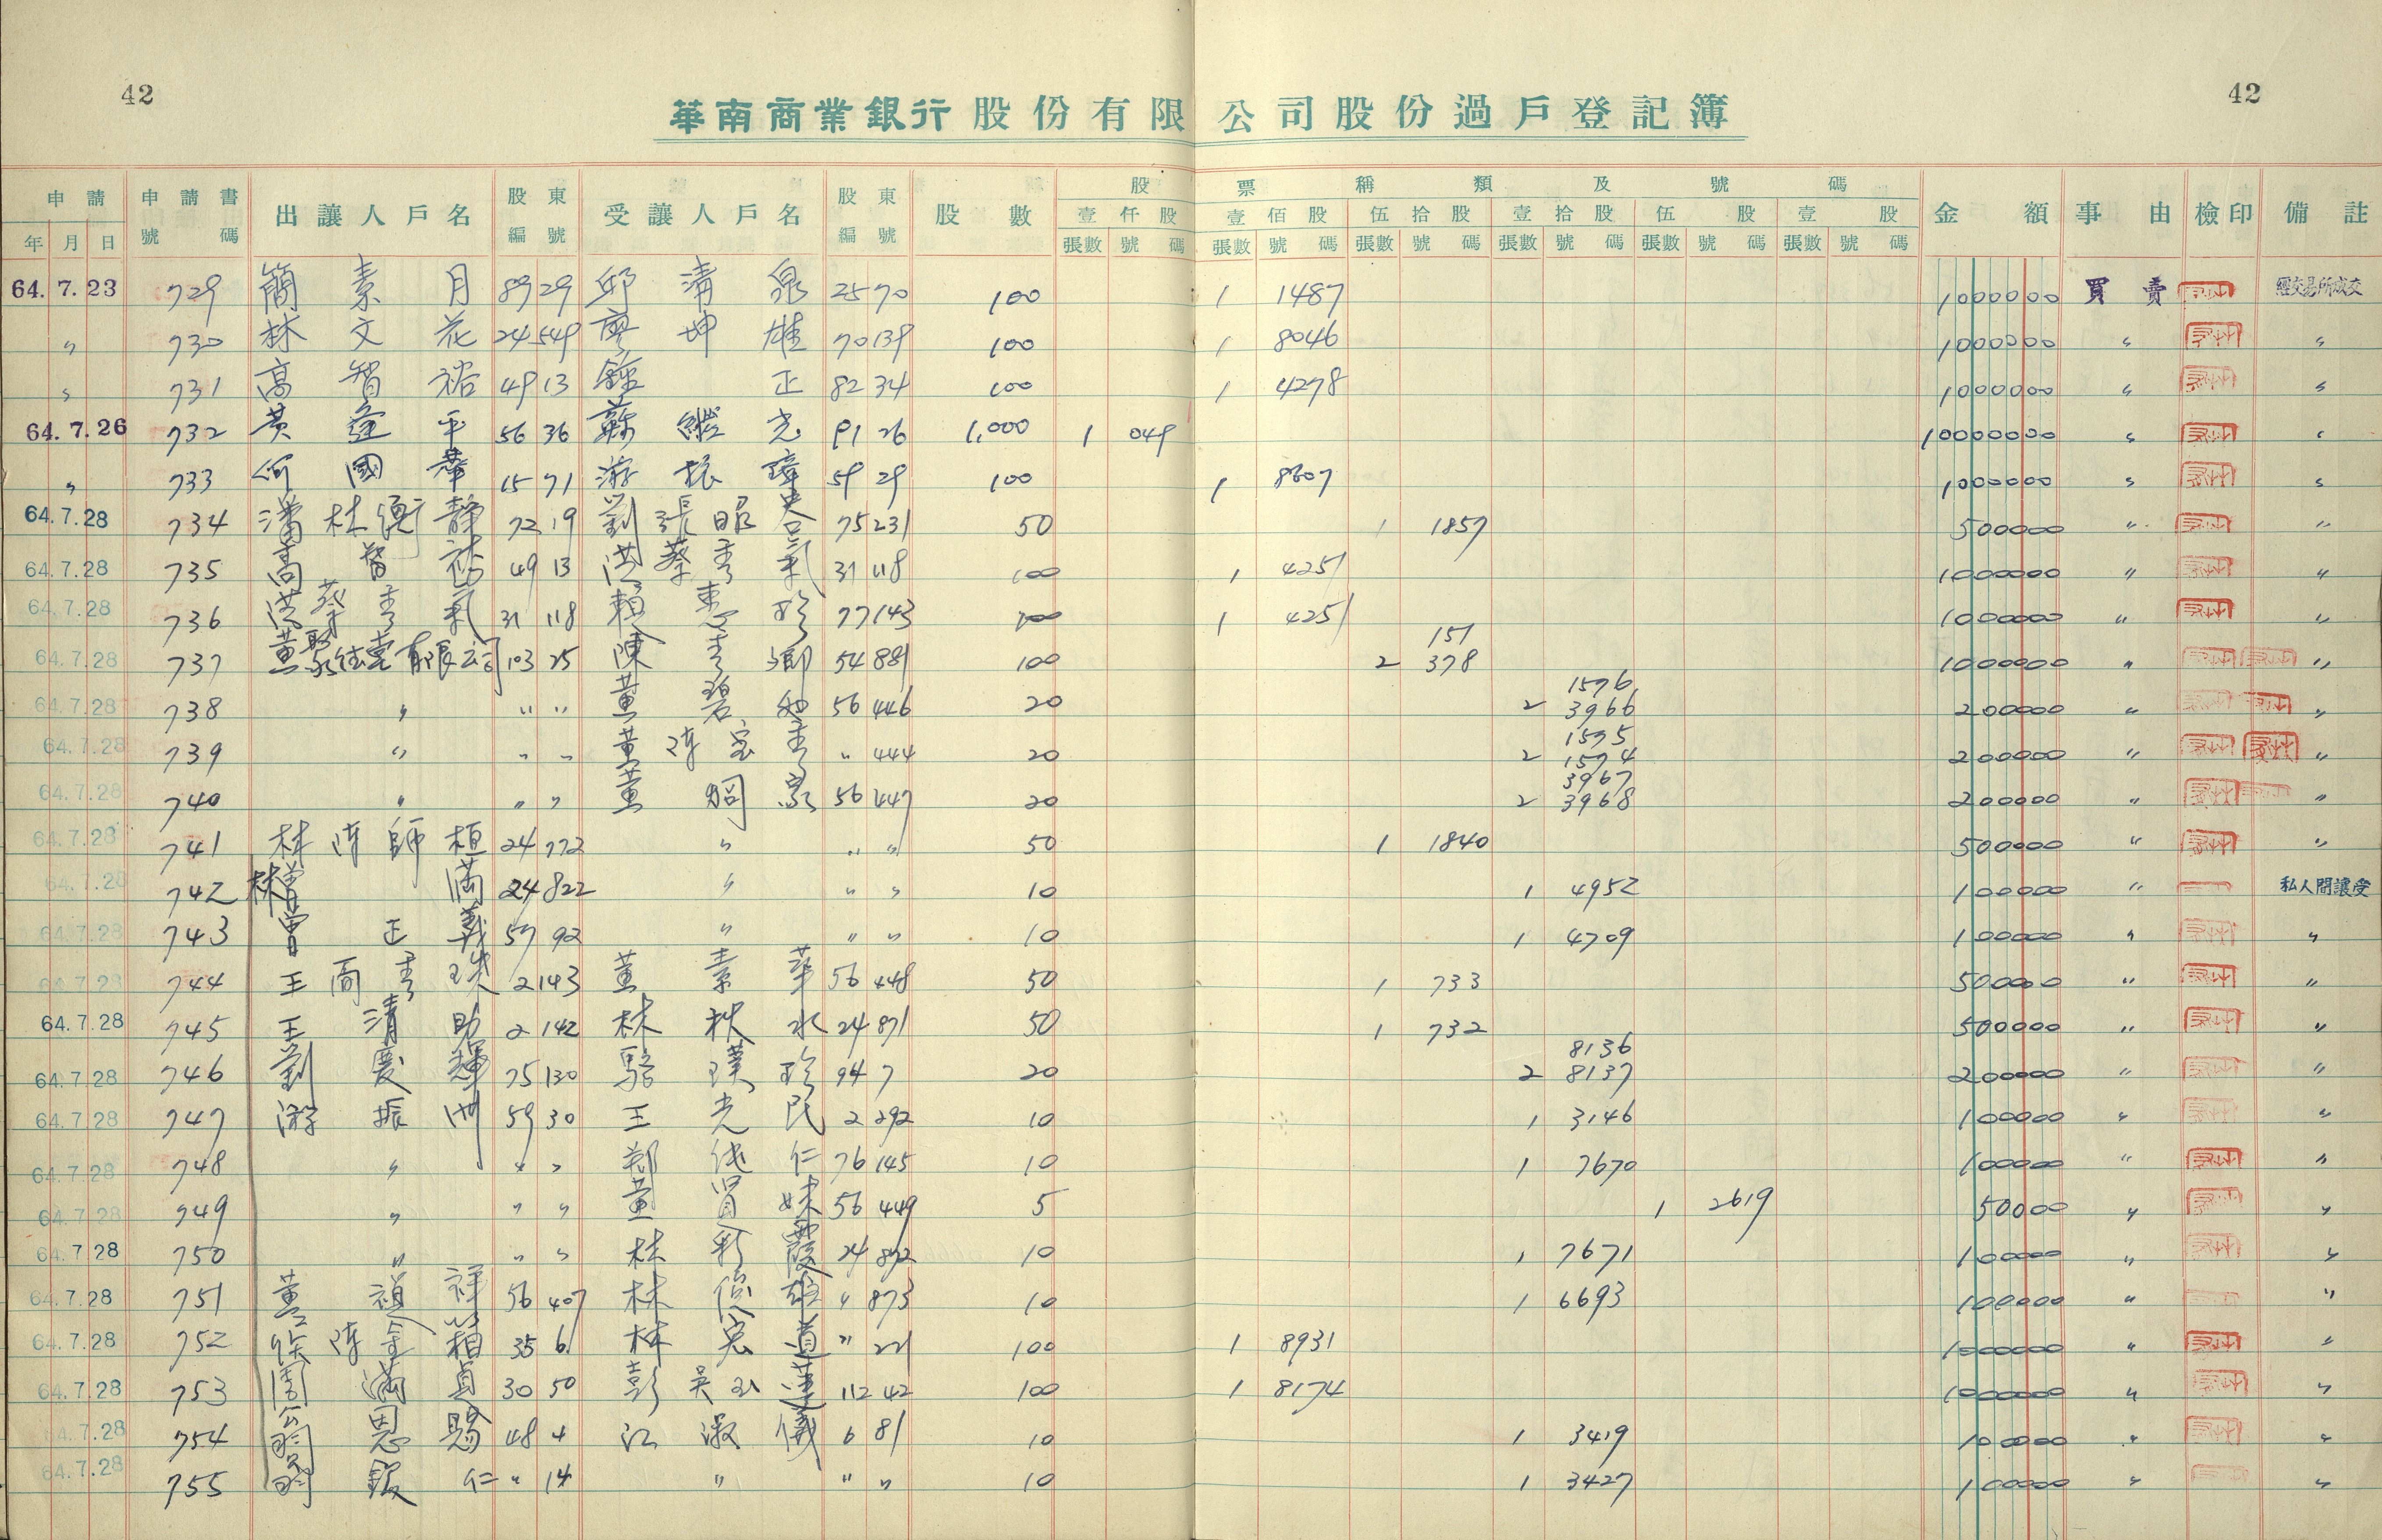 42 42
華南商業銀行股份有限公司股份過戶登記簿
申請 申請書 出讓人戶名 股東 受讓人戶名 股東 股數 股票種類及號碼 金額 事由 檢印 備註
年 月 日 號碼 編號 編號 壹仟股 壹佰股 伍拾股 壹拾股 伍股 壹股
張數 號碼 張數 號碼 張數 號碼 張數 號碼 張數 號碼 張數 號碼
64.7.23 729 簡素月 89 29 邱清泉 25 70 100 1 1487 1000000 買賣 經交易所成交
〃 730 林文花 24 549 廖坤雄 70 139 100 1 8046 1000000 〃 〃
〃 731 高智裕 49 13 鍾正 82 34 100 1 4278 1000000 〃 〃
64.7.26 732 黃逢平 56 36 蘇繼光 91 26 1,000 1 049 10000000 〃 〃
〃 733 何國華 15 71 游振璋 59 29 100 1 8807 1000000 〃 〃
64.7.28 734 潘林 靜 72 19 劉張昭 75 231 50 1 1857 500000 〃 〃
64.7.28 735 高智裕 49 13 洪蔡秀氣 31 118 100 1 4251 1000000 〃 〃
64.7.28 736 洪蔡秀氣 31 118 賴惠珍 77 143 100 1 4251 1000000 〃 〃
64.7.28 737 有限公司 103 25 陳秀卿 54 881 100 2 151 378 1000000 〃 〃
64.7.28 738 〃 〃 〃 董碧 56 446 20 2 1576 3966 200000 〃 〃
64.7.28 739 〃 〃 〃 董陳寶秀 〃 444 20 2 1575 1574 200000 〃 〃
64.7.28 740 〃 〃 〃 董 56 447 20 2 3967 3968 200000 〃 〃
64.7.28 741 林陳師桓 24 772 〃 〃 〃 50 1 1840 500000 〃 〃
64.7.28 742 林曾滿 24 822 〃 〃 〃 10 1 4952 100000 〃 私人間讓受
64.7.28 743 曾正義 57 92 〃 〃 〃 10 1 4709 100000 〃 〃
64.7.28 744 王 秀珠 2 143 董素華 56 448 50 1 733 500000 〃 〃
64.7.28 745 王清助 2 142 林秋水 24 871 50 1 732 500000 〃 〃
64.7.28 746 劉慶輝 75 130 駱璞珍 94 7 20 2 8136 8137 200000 〃 〃
64.7.28 747 游振洲 59 30 王光民 2 292 10 1 3146 100000 〃 〃
64.7.28 748 〃 〃 〃 仁 76 145 10 1 7670 100000 〃 〃
64.7.28 749 〃 〃 〃 董 妹 56 449 5 1 2619 50000 〃 〃
64.7.28 750 〃 〃 〃 林彩霞 24 872 10 1 7671 100000 〃 〃
64.7.28 751 董禎祥 56 407 林俊雄 〃 873 10 1 6693 100000 〃 〃
64.7.28 752 徐陳金相 35 6 林宏道 〃 221 100 1 8931 1000000 〃 〃
64.7.28 753 周滿貞 30 50 彭吳玉蓮 112 42 100 1 8174 1000000 〃 〃
64.7.28 754 翁恩賜 48 4 江淑儀 6 81 10 1 3419 100000 〃 〃
64.7.28 755 翁銀仁 〃 14 〃 〃 〃 10 1 3427 100000 〃 〃